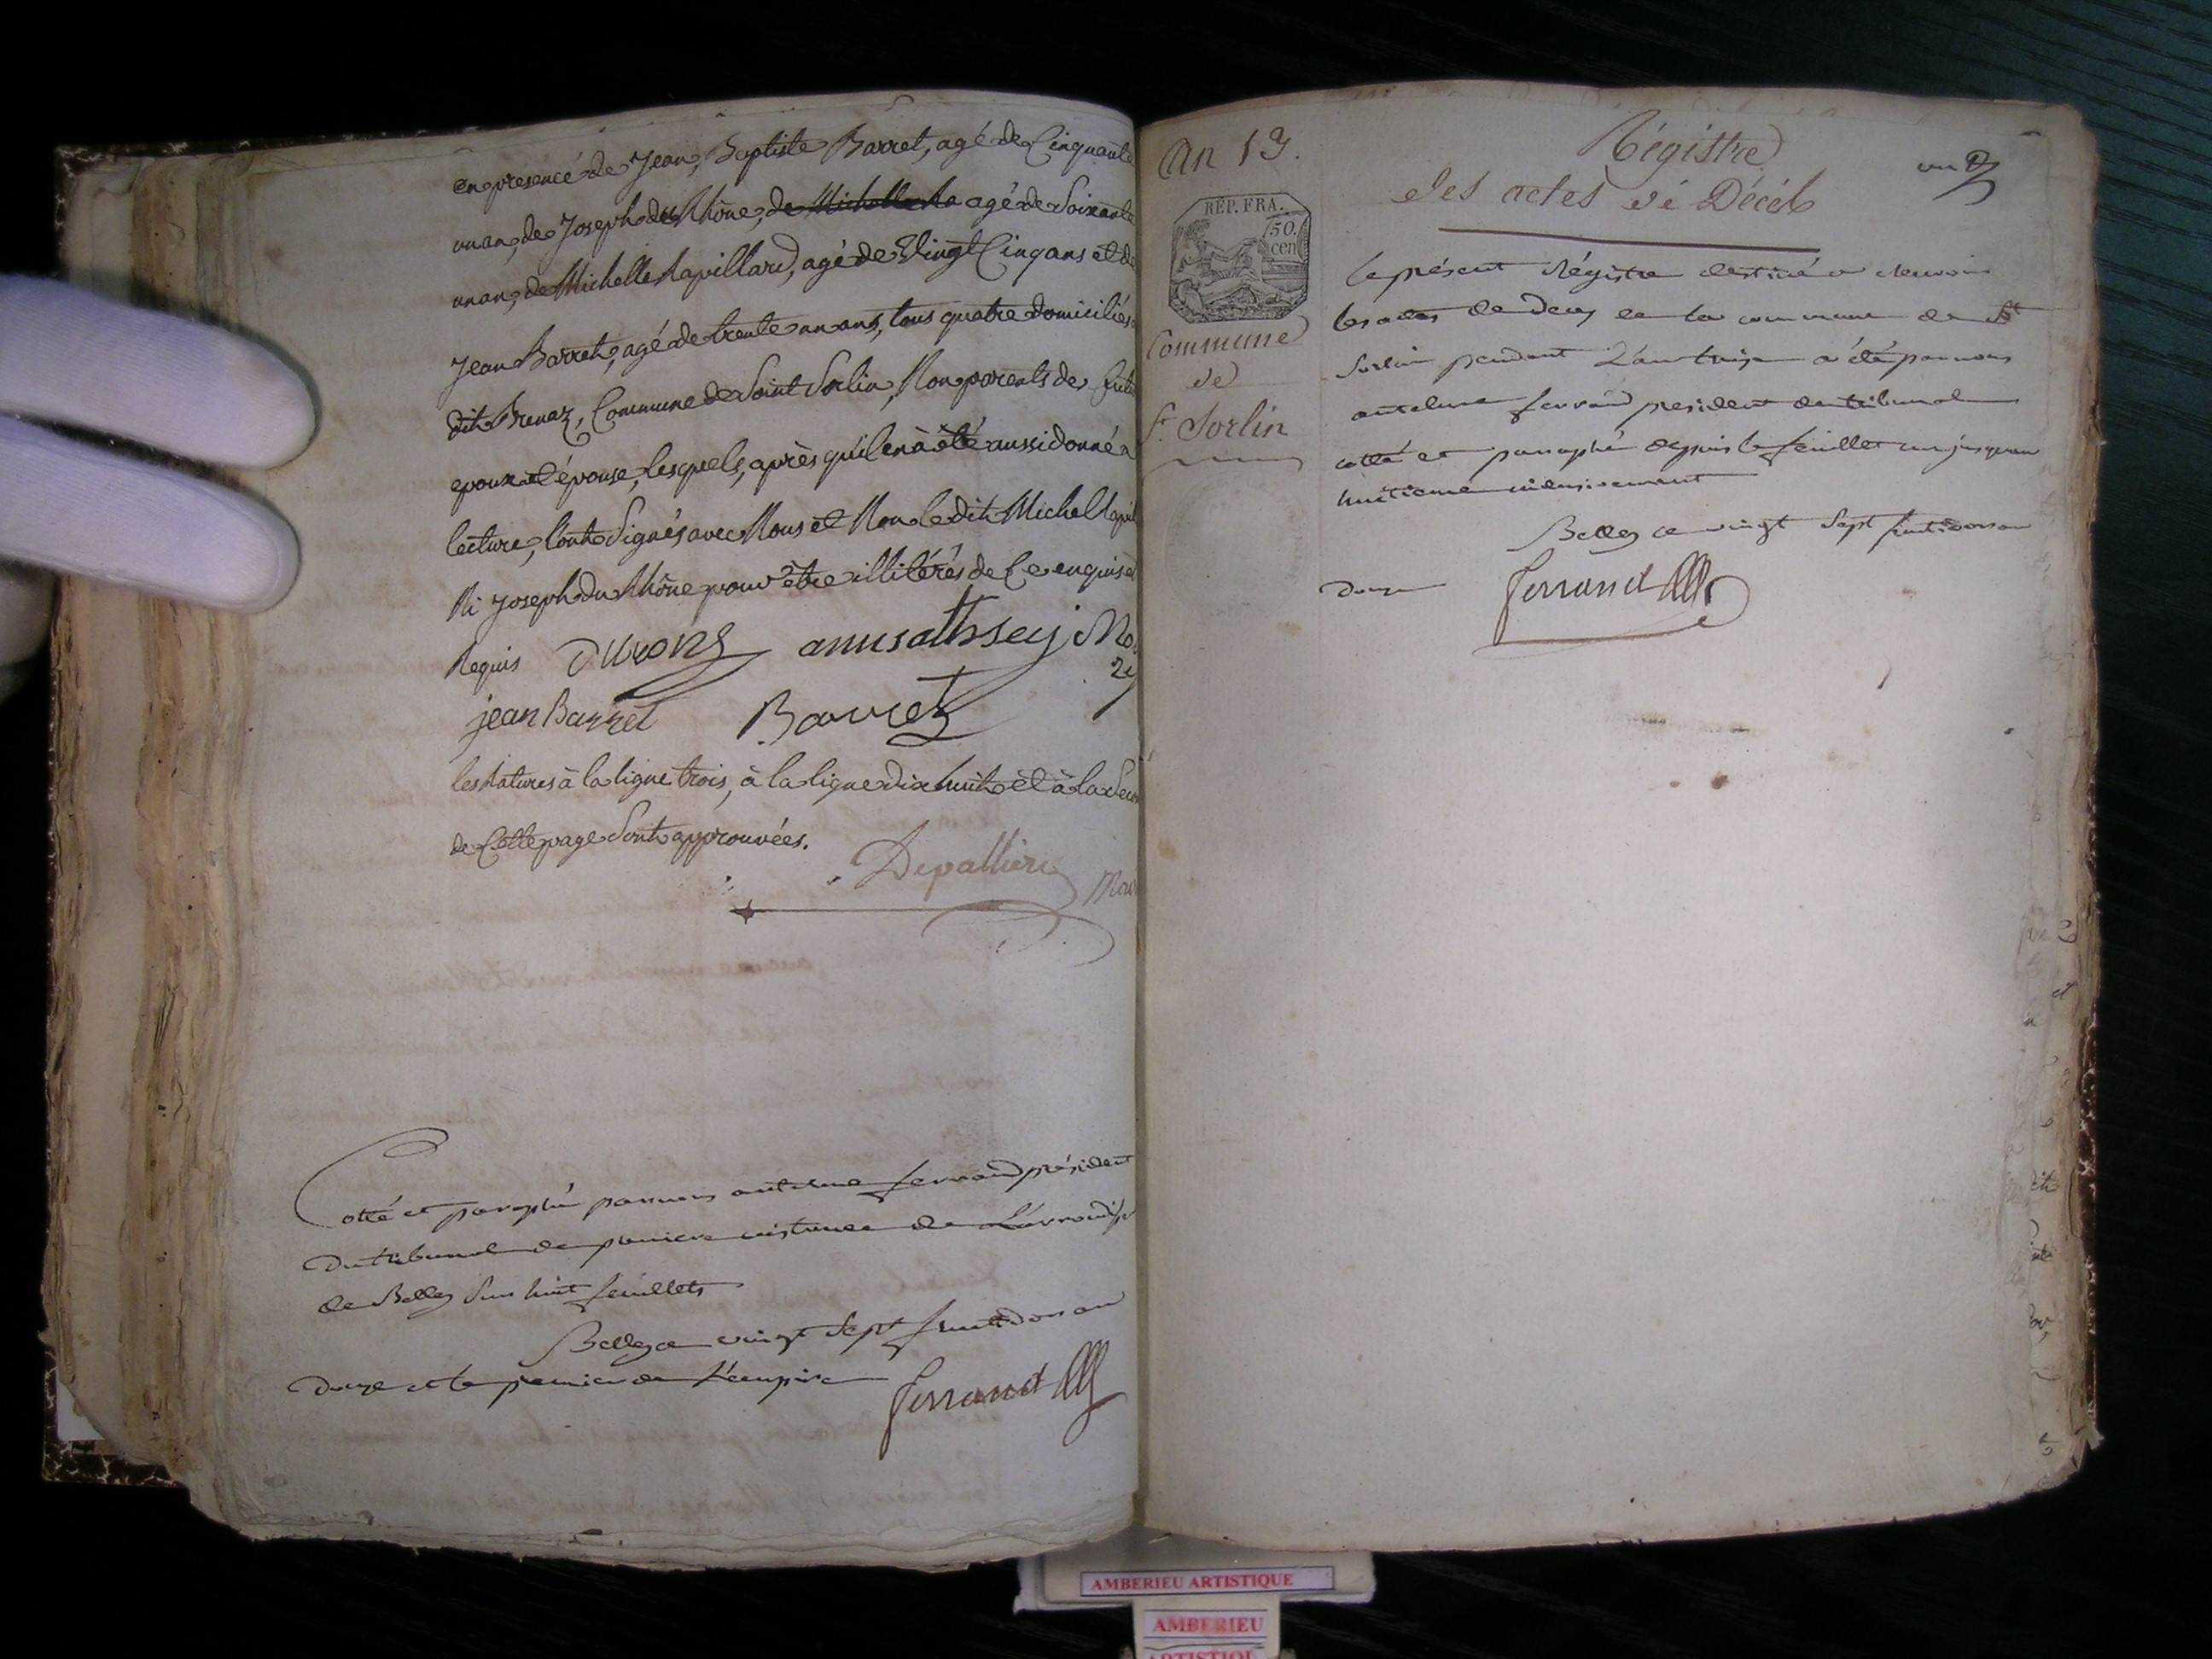 en presence de Jean, Baptiste Barret, agé de Cinquante
un an, de Joseph du Rhône, de Michelle Ra agé de Soixante
un an, de Michelle Rapillard, agé de Vingt Cinq ans et de
Jean Barret, agé de trente un ans, tous quatre domiciliés
dit Brenaz, Commune de Saint Sorlin, Non parents des futu
epoux et épouse, lesquels, après qu'il en à été aussi donné
lecture, l'ont Signés avec Nous et Non le dit Michel Rapil
Ni Joseph du Rhône pour être illitérés de Ce enquis et
Requis Durong
jean Barret Barret
les Ratures à la ligne trois, à la ligne dix huit et à la Seco
de Cette page Sont approuvées.
Depalliere
Cotté et paraphé par nous antelme ferrand président
Du tribunal de premiere instance de L'arrondiss
de Belley Sur huit feuillets
Belley ce vingt Sept fructidor an
Douze et le premier de L'empire
ferrand
An 13.
REP. FRA.
50.
cen
Commune
de
St. Sorlin
Régistre
des actes dé Décéb
un
le présent Régistre destiné a
les actes de Deces de la commune de St
Sorlin pendant L'an treize a été par nous
antelme ferrand president du tribunal
cotté et paraphé depuis le feuillet un jusqu'au
huitieme inclusivement
Belley ce vingt Sept fructidor an
Douze ferrand
AMBERIEU ARTISTIQUE
AMBERIEU
ARTISTIQUE